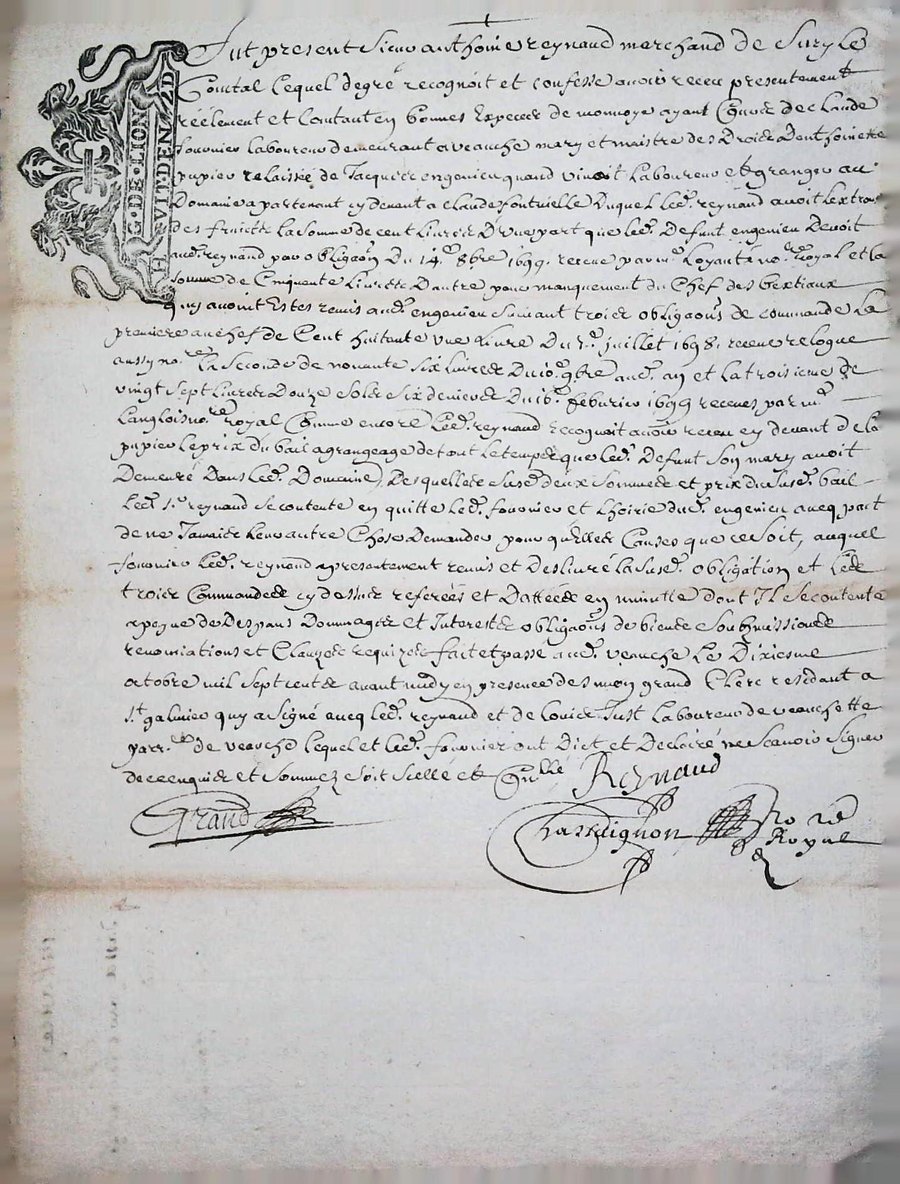 G. DE LION
HVIT. DEN
Fut present Sieur anthoine reynaud marchand de Sury Le
Comtal Lequel degré recognoit et confesse avoir receu presentement
réélement et Contant en bonnes Especes de monnoye ayant Cours de claude
fournier laboureur demeurant a veauche mary et maistre des Droicts Denthoinette
pupier relaissée de Jacques engenieu quand vivoit Laboureur et granger au
Domaine apartenant cy devant a claude fontvielle Duquel Led. reynaud avoit Lextrou
des fruicts La Somme de cent Livres D'une part que led. Defunt engenieu Devoit
aud. reynaud par obligaon Du 14.e 8bre 1699. receue par m.e Loyauté no.re Royal et la
Somme de Cinquante Livres D'autre pour manquement du Chef des bestiaux
quy avoint Estes remis aud. engenieu Suivant trois obligaons de commande La
premiere au chef de Cent huitante une Livre Du 7.e juillet 1698. receue relogue
aussy no.re La Seconde de nonante Six livres Du 10.e 9bre aud. an et La troisieme de
vingt Sept Livres Douze Sols Six deniers Du 16.e feburier 1699 receues par m.e
Langlois no.re royal Comme encore Led. reynaud recognoit avoir receu cy devant de la
pupier Le prix du bail a grangeage de tout Le temps que led. Defunt Son mary avoit
Demeuré Dans Led. Domaine, Desquelles Susd. deux Sommes et prix du Susd. bail
Led. S.r reynaud Se contente en quitte Led. fournier et L'hoirie dud. engenieu avec pact
de ne Jamais Leur autre Chose Demander pour quelles Causes que ce Soit, auquel
fournier Led. reynaud a presentement remis et Deslivré La Susd. obligation et Les
trois Commandes cy dessus referées et Dattées en minutte dont Il Se contente
a peyne de Despans Dommages et Interests obligaons de biens Soubmissions
renonciations et Clauzes requizes fait et passé aud. veauche Le Dixiesme
octobre mil Sept cent avant midy en presence de Simon grand Clerc residant a
S.t galmier quy a Signé avec Led. reynaud et de Louis Just Laboureur de veauchette
parr. de veauche Lequel et Led. fournier ont Dict et Declairé ne Scavoir Signer
de ce enquis et Sommez Soit Scellé et Reynaud
Grand Chassaignon No.re
Royal